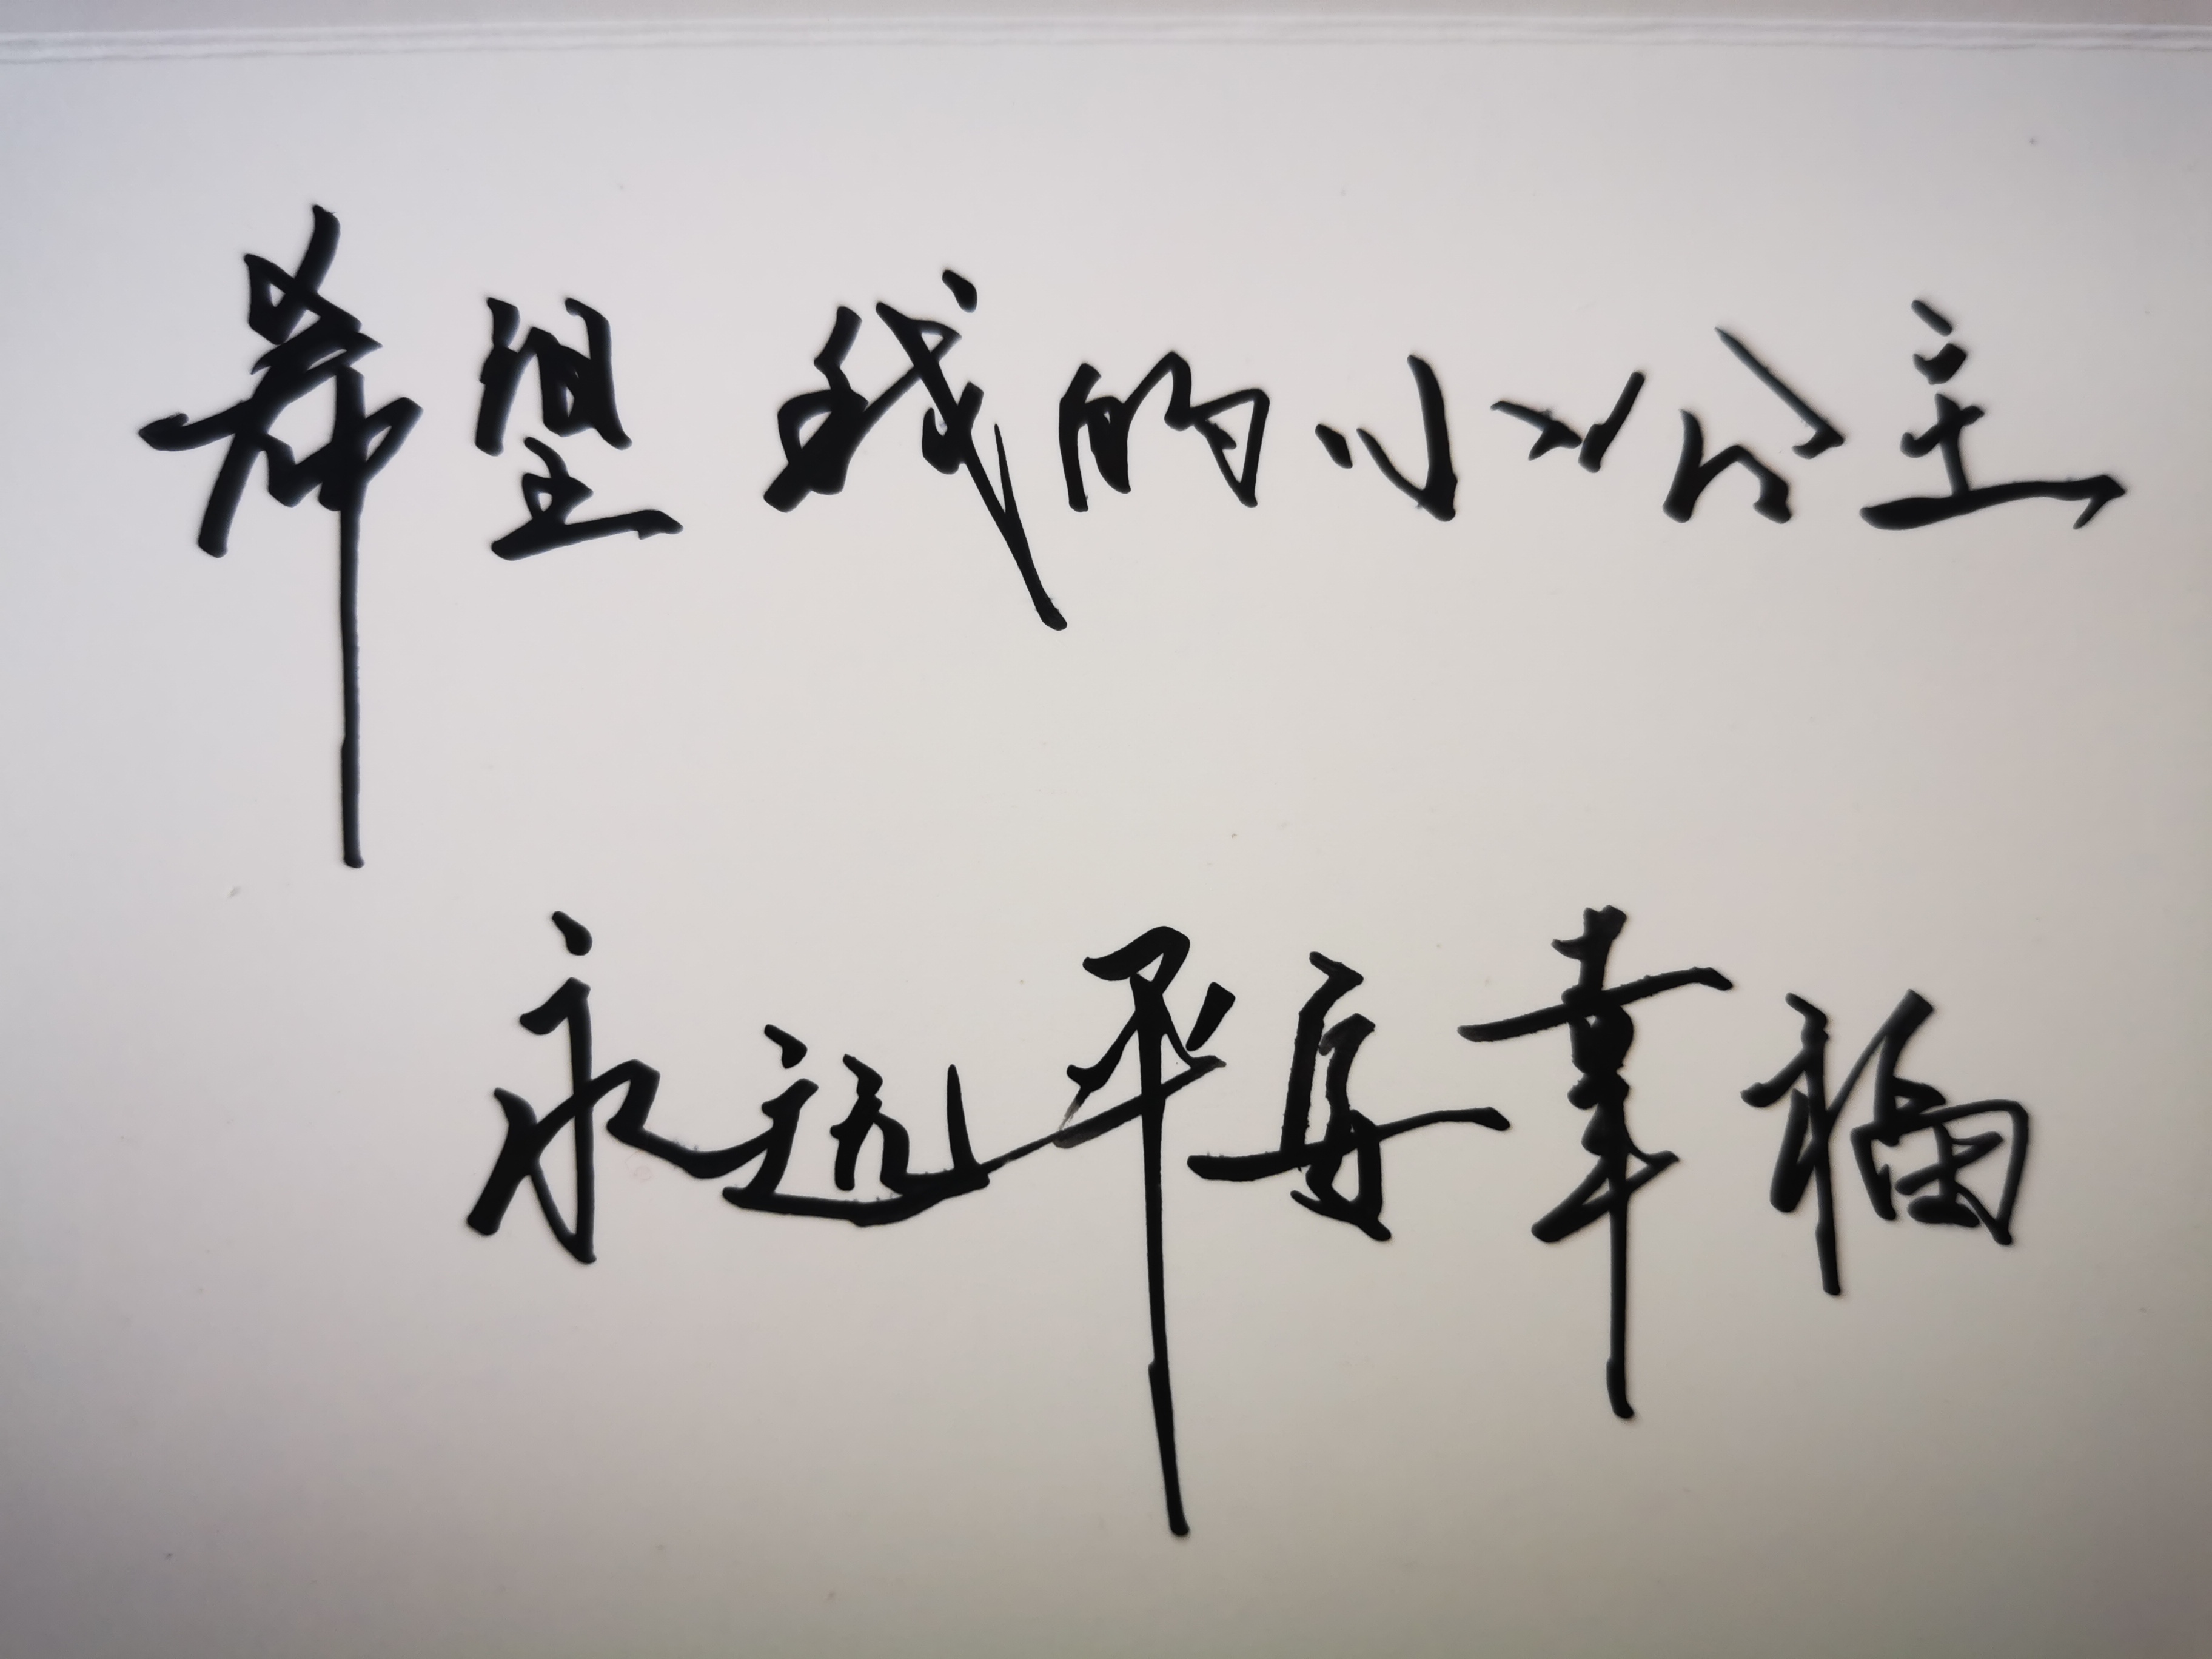 希望我的小公主
永远平安幸福